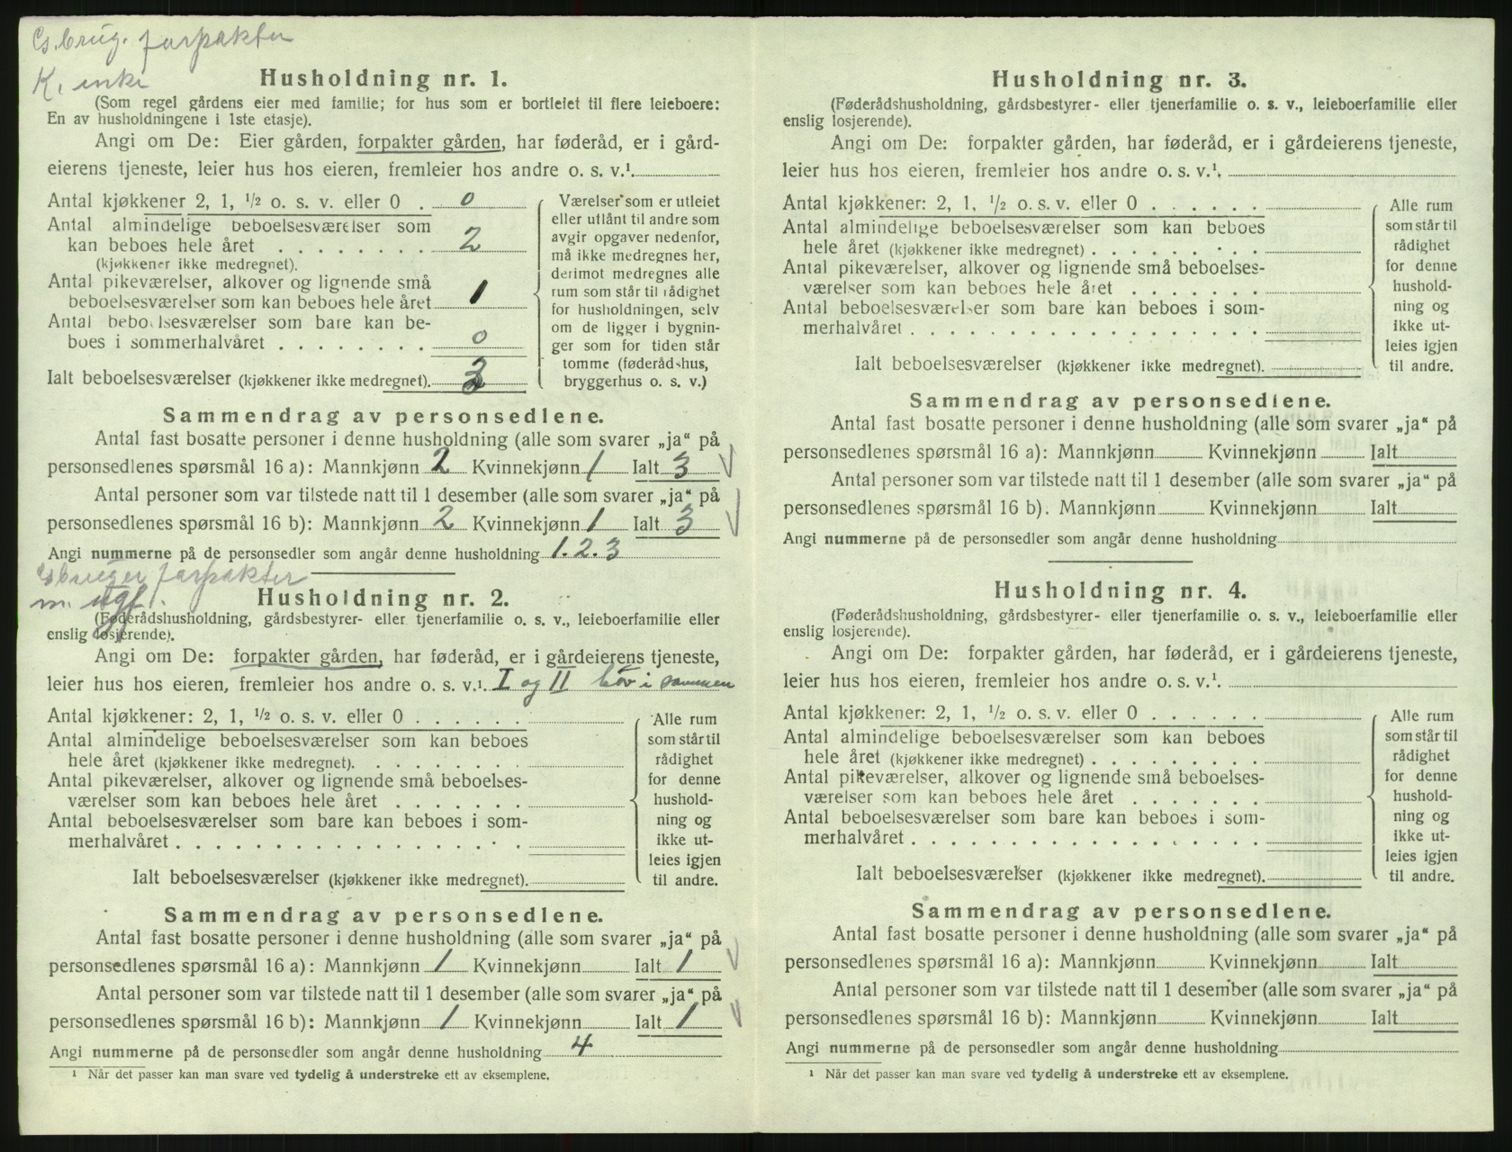 G.brug. forpakter
K. enke
Husholdning nr. 1.
(Som regel gårdens eier med familie; for hus som er bortleiet til flere leieboere:
En av husholdningene i 1ste etasje).
Angi om De: Eier gården, forpakter gården, har føderåd, er i gård-
eierens tjeneste, leier hus hos eieren, fremleier hos andre o. s. v.¹.
Antal kjøkkener 2, 1, ½ o. s. v. eller 0 . 0
Antal almindelige beboelsesværelser som
kan beboes hele året . . . . . . . . 2
(kjøkkener ikke medregnet).
Antal pikeværelser, alkover og lignende små
beboelsesværelser som kan beboes hele året 1
Antal beboelsesværelser som bare kan be-
boes i sommerhalvåret . . . . . . . . 0
Ialt beboelsesværelser (kjøkkener ikke medregnet). 3
Værelser som er utleiet
eller utlånt til andre som
avgir opgaver nedenfor,
må ikke medregnes her,
derimot medregnes alle
rum som står til rådighet
for husholdningen, selv
om de ligger i bygnin-
ger som for tiden står
tomme (føderådshus,
bryggerhus o. s. v.)
Sammendrag av personsedlene.
Antal fast bosatte personer i denne husholdning (alle som svarer „ja“ på
personsedlenes spørsmål 16 a): Mannkjønn 2 Kvinnekjønn 1 Ialt 3
Antal personer som var tilstede natt til 1 desember (alle som svarer „ja“ på
personsedlenes spørsmål 16 b): Mannkjønn 2 Kvinnekjønn 1 Ialt 3
Angi nummerne på de personsedler som angår denne husholdning 1. 2. 3
Gbruger forpakter
m. ugf.
Husholdning nr. 2.
(Føderådshusholdning, gårdsbestyrer- eller tjenerfamilie o. s. v., leieboerfamilie eller
enslig losjerende).
Angi om De: forpakter gården, har føderåd, er i gårdeierens tjeneste,
leier hus hos eieren, fremleier hos andre o. s. v.¹. I og II bor i sammen
Antal kjøkkener: 2, 1, ½ o. s. v. eller 0 . . . . . .
Antal almindelige beboelsesværelser som kan beboes
hele året (kjøkkener ikke medregnet). . . . . . . . .
Antal pikeværelser, alkover og lignende små beboelses-
værelser som kan beboes hele året . . . . . . .
Antal beboelsesværelser som bare kan beboes i som-
merhalvåret . . . . . . . . . . . . . . . . . .
Ialt beboelsesværelser (kjøkkener ikke medregnet).
Alle rum
som står til
rådighet
for denne
hushold-
ning og
ikke ut-
leies igjen
til andre.
Sammendrag av personsedlene.
Antal fast bosatte personer i denne husholdning (alle som svarer „ja“ på
personsedlenes spørsmål 16 a): Mannkjønn 1 Kvinnekjønn Ialt 1
Antal personer som var tilstede natt til 1 desember (alle som svarer „ja“ på
personsedlenes spørsmål 16 b): Mannkjønn 1 Kvinnekjønn Ialt 1
Angi nummerne på de personsedler som angår denne husholdning 4
¹ Når det passer kan man svare ved tydelig å understreke ett av eksemplene.
Husholdning nr. 3.
(Føderådshusholdning, gårdsbestyrer- eller tjenerfamilie o. s. v., leieboerfamilie eller
enslig losjerende).
Angi om De: forpakter gården, har føderåd, er i gårdeierens tjeneste,
leier hus hos eieren, fremleier hos andre o. s. v.¹.
Antal kjøkkener: 2, 1, ½ o. s. v. eller 0 . . . . . .
Antal almindelige beboelsesværelser som kan beboes
hele året (kjøkkener ikke medregnet) . . . . . . . . .
Antal pikeværelser, alkover og lignende små beboelses-
værelser som kan beboes hele året . . . . . . .
Antal beboelsesværelser som bare kan beboes i som-
merhalvåret . . . . . . . . . . . . . . . . . .
Ialt beboelsesværelser (kjøkkener ikke medregnet).
Alle rum
som står til
rådighet
for denne
hushold-
ning og
ikke ut-
leies igjen
til andre.
Sammendrag av personsedlene.
Antal fast bosatte personer i denne husholdning (alle som svarer „ja“ på
personsedlenes spørsmål 16 a): Mannkjønn Kvinnekjønn Ialt
Antal personer som var tilstede natt til 1 desember (alle som svarer „ja“ på
personsedlenes spørsmål 16 b). Mannkjønn Kvinnekjønn Ialt
Angi nummerne på de personsedler som angår denne husholdning
Husholdning nr. 4.
(Føderådshusholdning, gårdsbestyrer- eller tjenerfamilie o. s. v., leieboerfamilie eller
enslig losjerende).
Angi om De: forpakter gården, har føderåd, er i gårdeierens tjeneste,
leier hus hos eieren, fremleier hos andre o. s. v.¹.
Antal kjøkkener: 2, 1, ½ o. s. v. eller 0 . . . . . .
Antal almindelige beboelsesværelser som kan beboes
hele året (kjøkkener ikke medregnet) . . . . . . . . .
Antal pikeværelser, alkover og lignende små beboelses-
værelser som kan beboes hele året . . . . . . .
Antal beboelsesværelser som bare kan beboes i som-
merhalvåret . . . . . . . . . . . . . . . . . .
Ialt beboelsesværelser (kjøkkener ikke medregnet).
Alle rum
som står til
rådighet
for denne
hushold-
ning og
ikke ut-
leies igjen
til andre.
Sammendrag av personsedlene.
Antal fast bosatte personer i denne husholdning (alle som svarer „ja“ på
personsedlenes spørsmål 16 a): Mannkjønn Kvinnekjønn Ialt
Antal personer som var tilstede natt til 1 desember (alle som svarer „ja“ på
personsedlenes spørsmål 16 b): Mannkjønn Kvinnekjønn Ialt
Angi nummerne på de personsedler som angår denne husholdning
¹ Når det passer kan man svare ved tydelig å understreke ett av eksemplene.